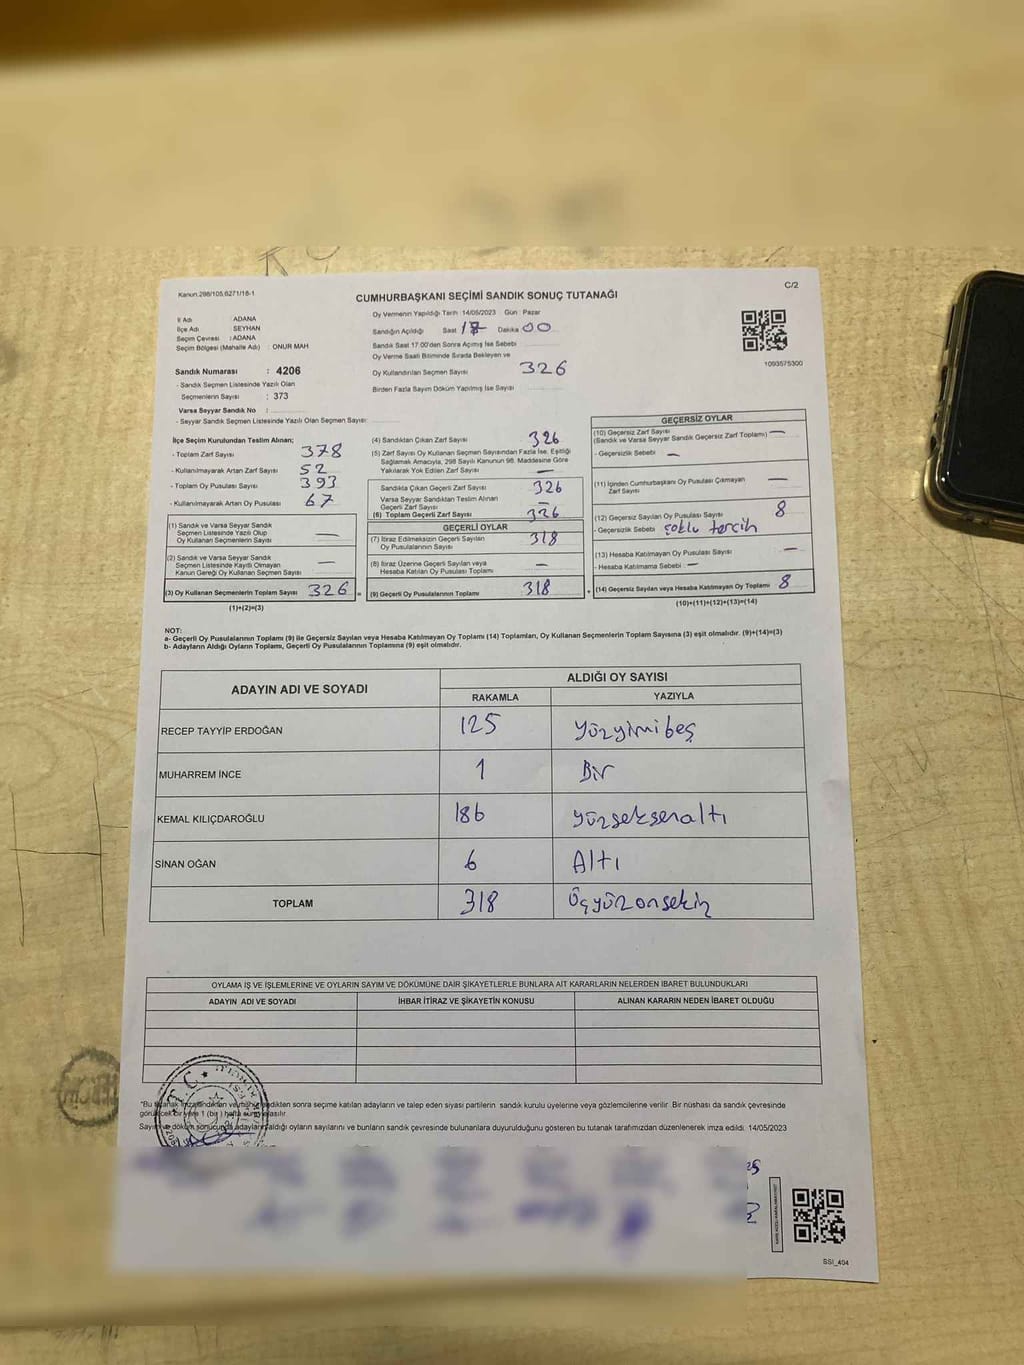 Kanun:298/105,6271/18-1
C/2
CUMHURBAŞKANI SEÇİMİ SANDIK SONUÇ TUTANAĞI
İl Adı : ADANA
İlçe Adı : SEYHAN
Seçim Çevresi : ADANA
Seçim Bölgesi (Mahalle Adı) : ONUR MAH
Sandık Numarası : 4206
- Sandık Seçmen Listesinde Yazılı Olan
Seçmenlerin Sayısı : 373
Varsa Seyyar Sandık No :
- Seyyar Sandık Seçmen Listesinde Yazılı Olan Seçmen Sayısı:
Oy Vermenin Yapıldığı Tarih 14/05/2023 Gün : Pazar
Sandığın Açıldığı Saat 17 Dakika 00
Sandık Saat 17:00'den Sonra Açımış İse Sebebi
Oy Verme Saati Bitiminde Sırada Bekleyen ve
Oy Kullandırılan Seçmen Sayısı 326
Birden Fazla Sayım Döküm Yapılmış İse Sayısı
1093575300
İlçe Seçim Kurulundan Teslim Alınan;
- Toplam Zarf Sayısı 378
- Kullanılmayarak Artan Zarf Sayısı 52
- Toplam Oy Pusulası Sayısı 393
- Kullanılmayarak Artan Oy Pusulası 67
(1) Sandık ve Varsa Seyyar Sandık
Seçmen Listesinde Yazılı Olup
Oy Kullanan Seçmenlerin Sayısı —
(2) Sandık ve Varsa Seyyar Sandık
Seçmen Listesinde Kayıtlı Olmayan
Kanun Gereği Oy Kullanan Seçmen Sayısı —
(3) Oy Kullanan Seçmenlerin Toplam Sayısı 326 =
(1)+(2)=(3)
(4) Sandıktan Çıkan Zarf Sayısı 326
(5) Zarf Sayısı Oy Kullanan Seçmen Sayısından Fazla İse, Eşitliği
Sağlamak Amacıyla, 298 Sayılı Kanunun 98. Maddesine Göre
Yakılarak Yok Edilen Zarf Sayısı —
Sandıkta Çıkan Geçerli Zarf Sayısı 326
Varsa Seyyar Sandıktan Teslim Alınan
Geçerli Zarf Sayısı —
(6) Toplam Geçerli Zarf Sayısı 326
GEÇERLİ OYLAR
(7) İtiraz Edilmeksizin Geçerli Sayılan
Oy Pusulalarının Sayısı 318
(8) İtiraz Üzerine Geçerli Sayılan veya
Hesaba Katılan Oy Pusulası Toplamı —
(9) Geçerli Oy Pusulalarının Toplamı 318 +
GEÇERSİZ OYLAR
(10) Geçersiz Zarf Sayısı
(Sandık ve Varsa Seyyar Sandık Geçersiz Zarf Toplamı) —
- Geçersizlik Sebebi —
(11) İçinden Cumhurbaşkanı Oy Pusulası Çıkmayan
Zarf Sayısı —
(12) Geçersiz Sayılan Oy Pusulası Sayısı 8
- Geçersizlik Sebebi çoklu tercih
(13) Hesaba Katılmayan Oy Pusulası Sayısı —
- Hesaba Katılmama Sebebi —
(14) Geçersiz Sayılan veya Hesaba Katılmayan Oy Toplamı 8
(10)+(11)+(12)+(13)=(14)
NOT:
a- Geçerli Oy Pusulalarının Toplamı (9) ile Geçersiz Sayılan veya Hesaba Katılmayan Oy Toplamı (14) Toplamları, Oy Kullanan Seçmenlerin Toplam Sayısına (3) eşit olmalıdır. (9)+(14)=(3)
b- Adayların Aldığı Oyların Toplamı, Geçerli Oy Pusulalarının Toplamına (9) eşit olmalıdır.
ADAYIN ADI VE SOYADI ALDIĞI OY SAYISI
RAKAMLA YAZIYLA
RECEP TAYYİP ERDOĞAN 125 yüzyimibeş
MUHARREM İNCE 1 Bir
KEMAL KILIÇDAROĞLU 186 yüzseksenaltı
SİNAN OĞAN 6 Altı
TOPLAM 318 Üçyüzonsekiz
OYLAMA İŞ VE İŞLEMLERİNE VE OYLARIN SAYIM VE DÖKÜMÜNE DAİR ŞİKAYETLERLE BUNLARA AİT KARARLARIN NELERDEN İBARET BULUNDUKLARI
ADAYIN ADI VE SOYADI İHBAR İTİRAZ VE ŞİKAYETİN KONUSU ALINAN KARARIN NEDEN İBARET OLDUĞU
T.C.
"Bu tutanak imzalandıktan ve mühürlendikten sonra seçime katılan adayların ve talep eden siyasi partilerin sandık kurulu üyelerine veya gözlemcilerine verilir. Bir nüshası da sandık çevresinde
görülecek bir yere 1 (bir) hafta süreyle asılır.
Sayım ve döküm sonucunda adayların aldığı oyların sayılarını ve bunların sandık çevresinde bulunanlara duyurulduğunu gösteren bu tutanak tarafımızdan düzenlenerek imza edildi. 14/05/2023
SSI_404